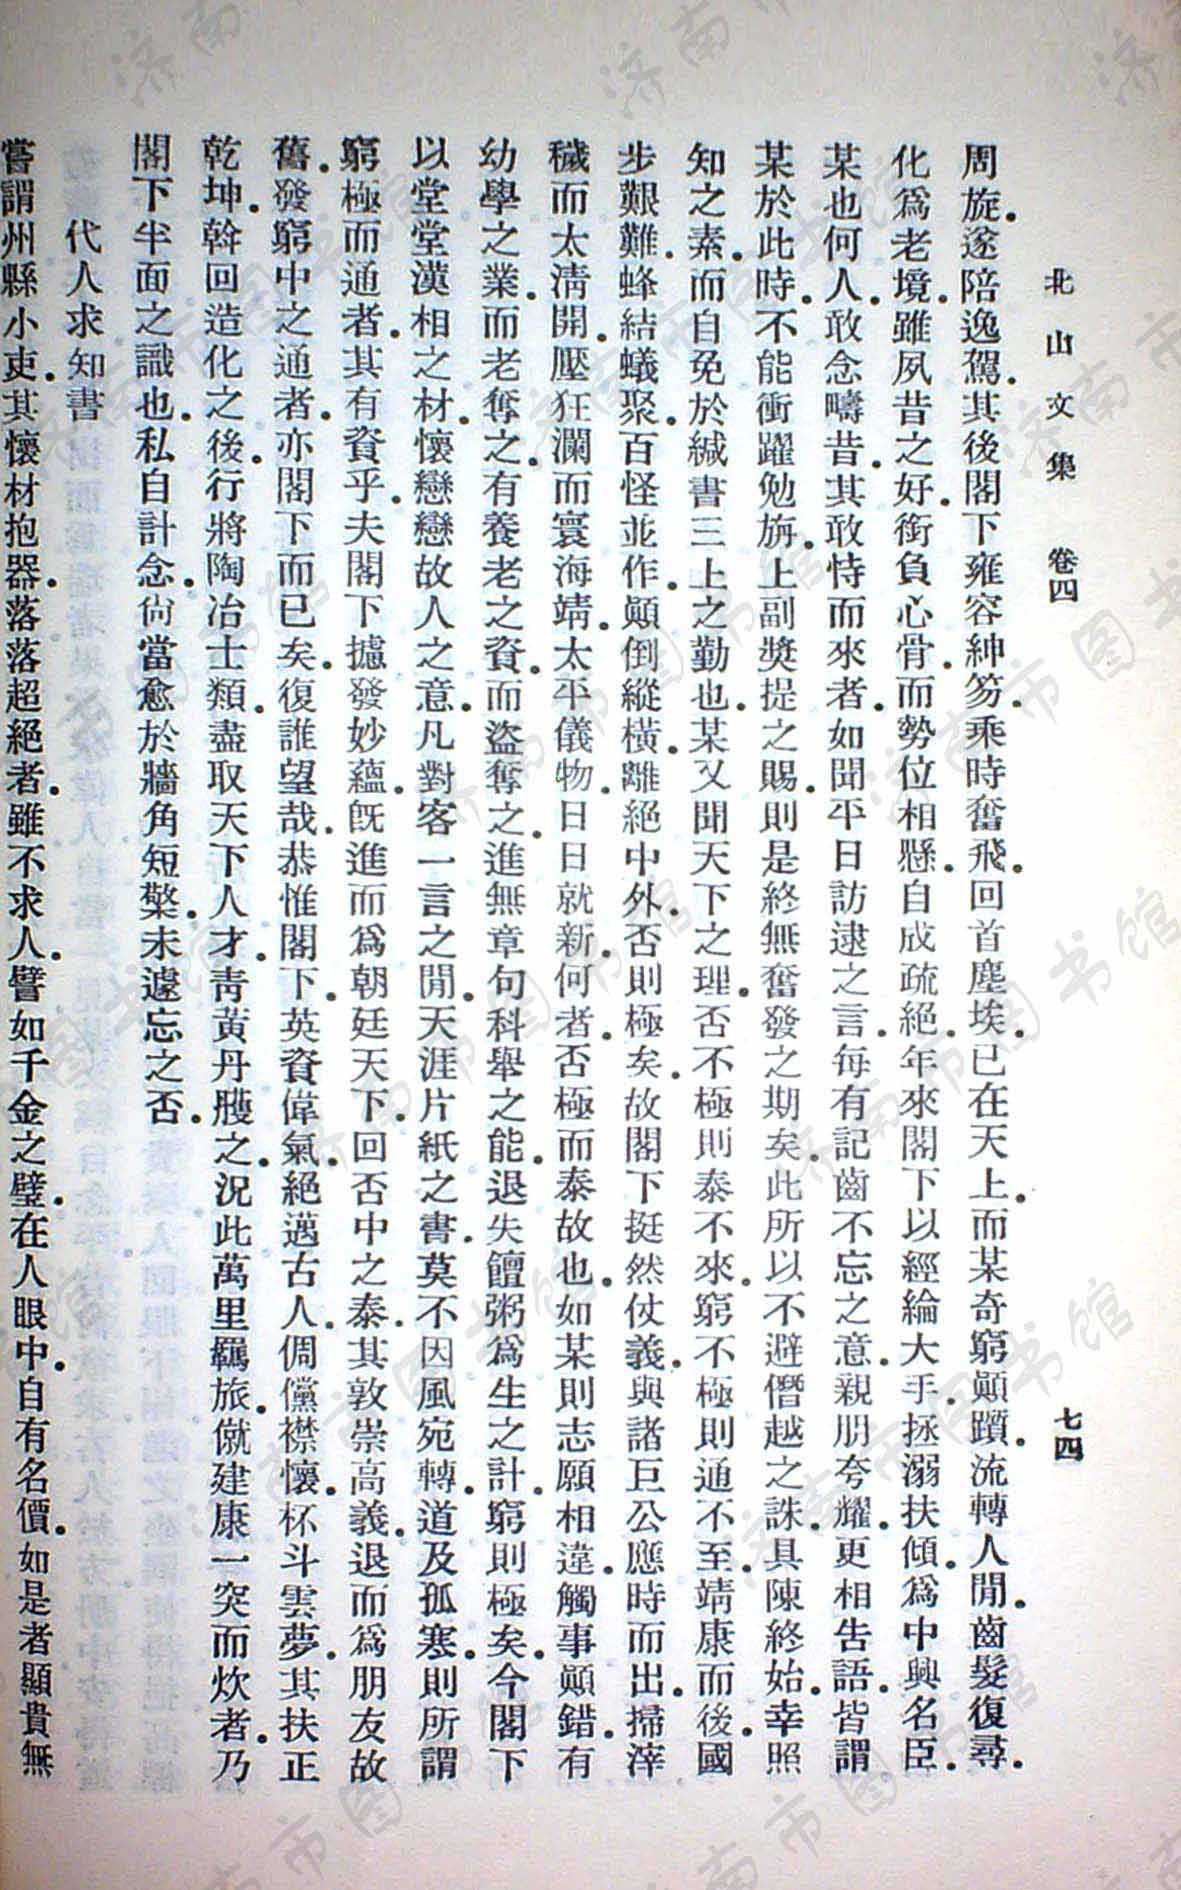 北山文集 卷四 七四
周旋。遂陪逸駕。其後閣下雍容紳笏。乘時奮飛。回首塵埃。已在天上。而某奇窮顚躓。流轉人閒。齒髮復尋。
化爲老境。雖夙昔之好。銜負心骨。而勢位相懸。自成疏絕。年來閣下以經綸大手。拯溺扶傾。爲中興名臣。
某也何人。敢念疇昔。其敢恃而來者。如聞平日訪逮之言。每有記齒不忘之意。親朋夸耀。更相告語。皆謂
某於此時。不能衝躍勉旃。上副獎提之賜。則是終無奮發之期矣。此所以不避僭越之誅。具陳終始。幸照
知之素。而自免於緘書三上之勤也。某又聞天下之理。否不極則泰不來。窮不極則通不至。靖康而後。國
步艱難。蜂結蟻聚。百怪並作。顚倒縱橫。離絕中外。否則極矣。故閣下挺然仗義。與諸巨公應時而出。掃滓
穢而太淸開。壓狂瀾而寰海靖。太平儀物。日日就新。何者。否極而泰故也。如某則志願相違。觸事顚錯。有
幼學之業。而老奪之。有養老之資。而盜奪之。進無章句科舉之能。退失饘粥爲生之計。窮則極矣。今閣下
以堂堂漢相之材。懷戀戀故人之意。凡對客一言之閒。天涯片紙之書。莫不因風宛轉。道及孤寒。則所謂
窮極而通者。其有資乎。夫閣下攄發妙蘊。旣進而爲朝廷天下。回否中之泰。其敦崇高義。退而爲朋友故
舊。發窮中之通者。亦閣下而已矣。復誰望哉。恭惟閣下。英資偉氣。絕邁古人。倜儻襟懷。杯斗雲夢。其扶正
乾坤。斡回造化之後。行將陶冶士類。盡取天下人才。靑黃丹雘之。況此萬里羈旅。僦建康一突而炊者。乃
閣下半面之識也。私自計念。尙當愈於牆角短檠。未遽忘之否。
代人求知書
嘗謂州縣小吏。其懷材抱器。落落超絕者。雖不求人。譬如千金之璧。在人眼中。自有名價。如是者顯貴無